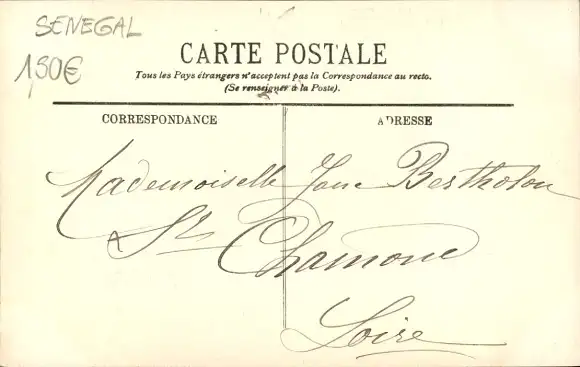 SENEGAL
1,50€
CARTE POSTALE
Tous les Pays étrangers n'acceptent pas la Correspondance au recto.
(Se renseigner à la Poste).
CORRESPONDANCE
ADRESSE
Mademoiselle Jane Bertholon
A St Chamond
Loire